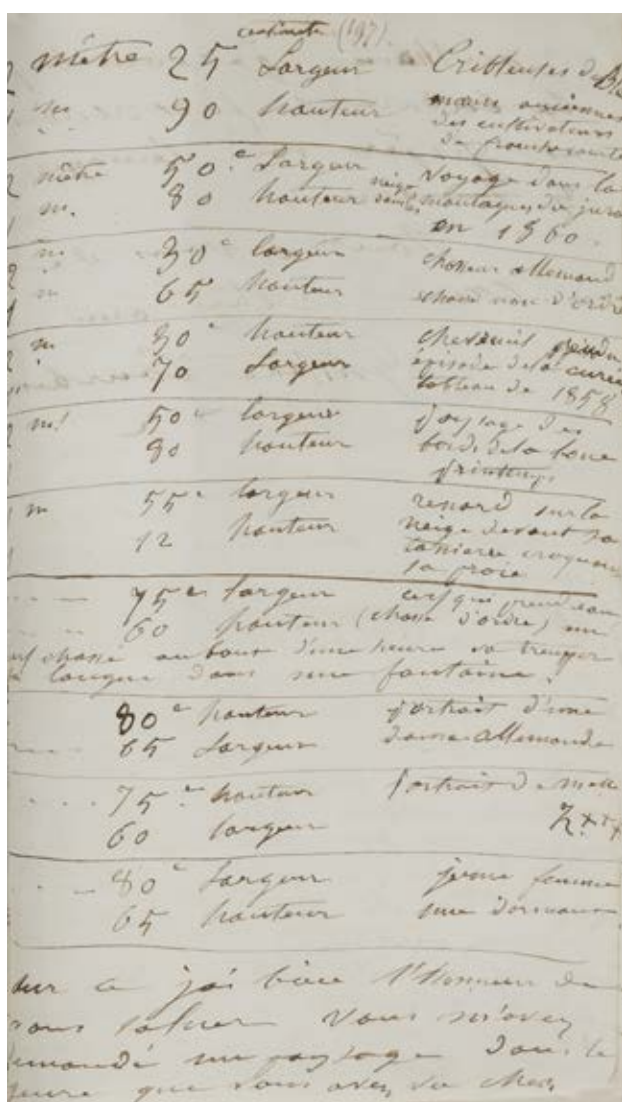 centimetre (197)
mètre 25 Largeur Cribleuses de Blé
m 90 hauteur mœurs anciennes
des cultivateurs
de franche comté
mètre 50 c Largeur Voyage dans la
m. 80 hauteur neige dans les montagnes du jura
en 1860.
m 30 c largeur chasseur allemand
m 65 hauteur
m 90 c hauteur chevreuil pendu
70 Largeur épisode de la curée
tableau de 1858
m 50 c largeur paysage des
90 hauteur bords de la loue
printemps
m 55 c largeur renard sur la
12 hauteur neige devant sa
tanière croquant
sa proie
75 c largeur cerf qui prend eau
60 hauteur (chasse d'ordre) un
cerf chassé au bout d'une heure va tremper
la langue dans une fontaine.
80 c hauteur portrait d'une
65 Largeur dame allemande
75 c hauteur Portrait de Melle
60 largeur Z***
80 c Largeur jeune femme
65 hauteur nue dormant
sur ce j'ai bien l'honneur de
vous saluer Vous m'avez
demandé un paysage dans le
genre que vous avez vu chez